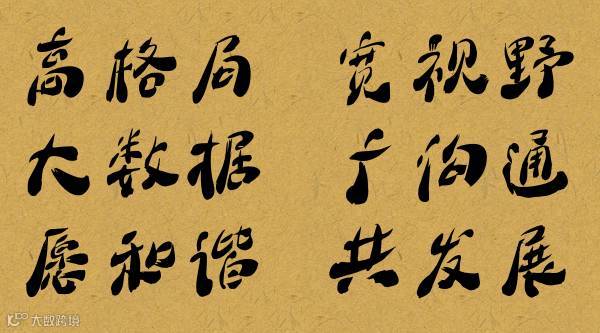 高格局 宽视野
大数据 广沟通
愿和谐 共发展
大数跨境